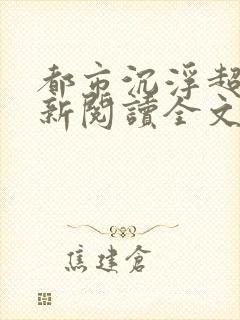 都市沉浮超
新閱讀全文
焦建倉